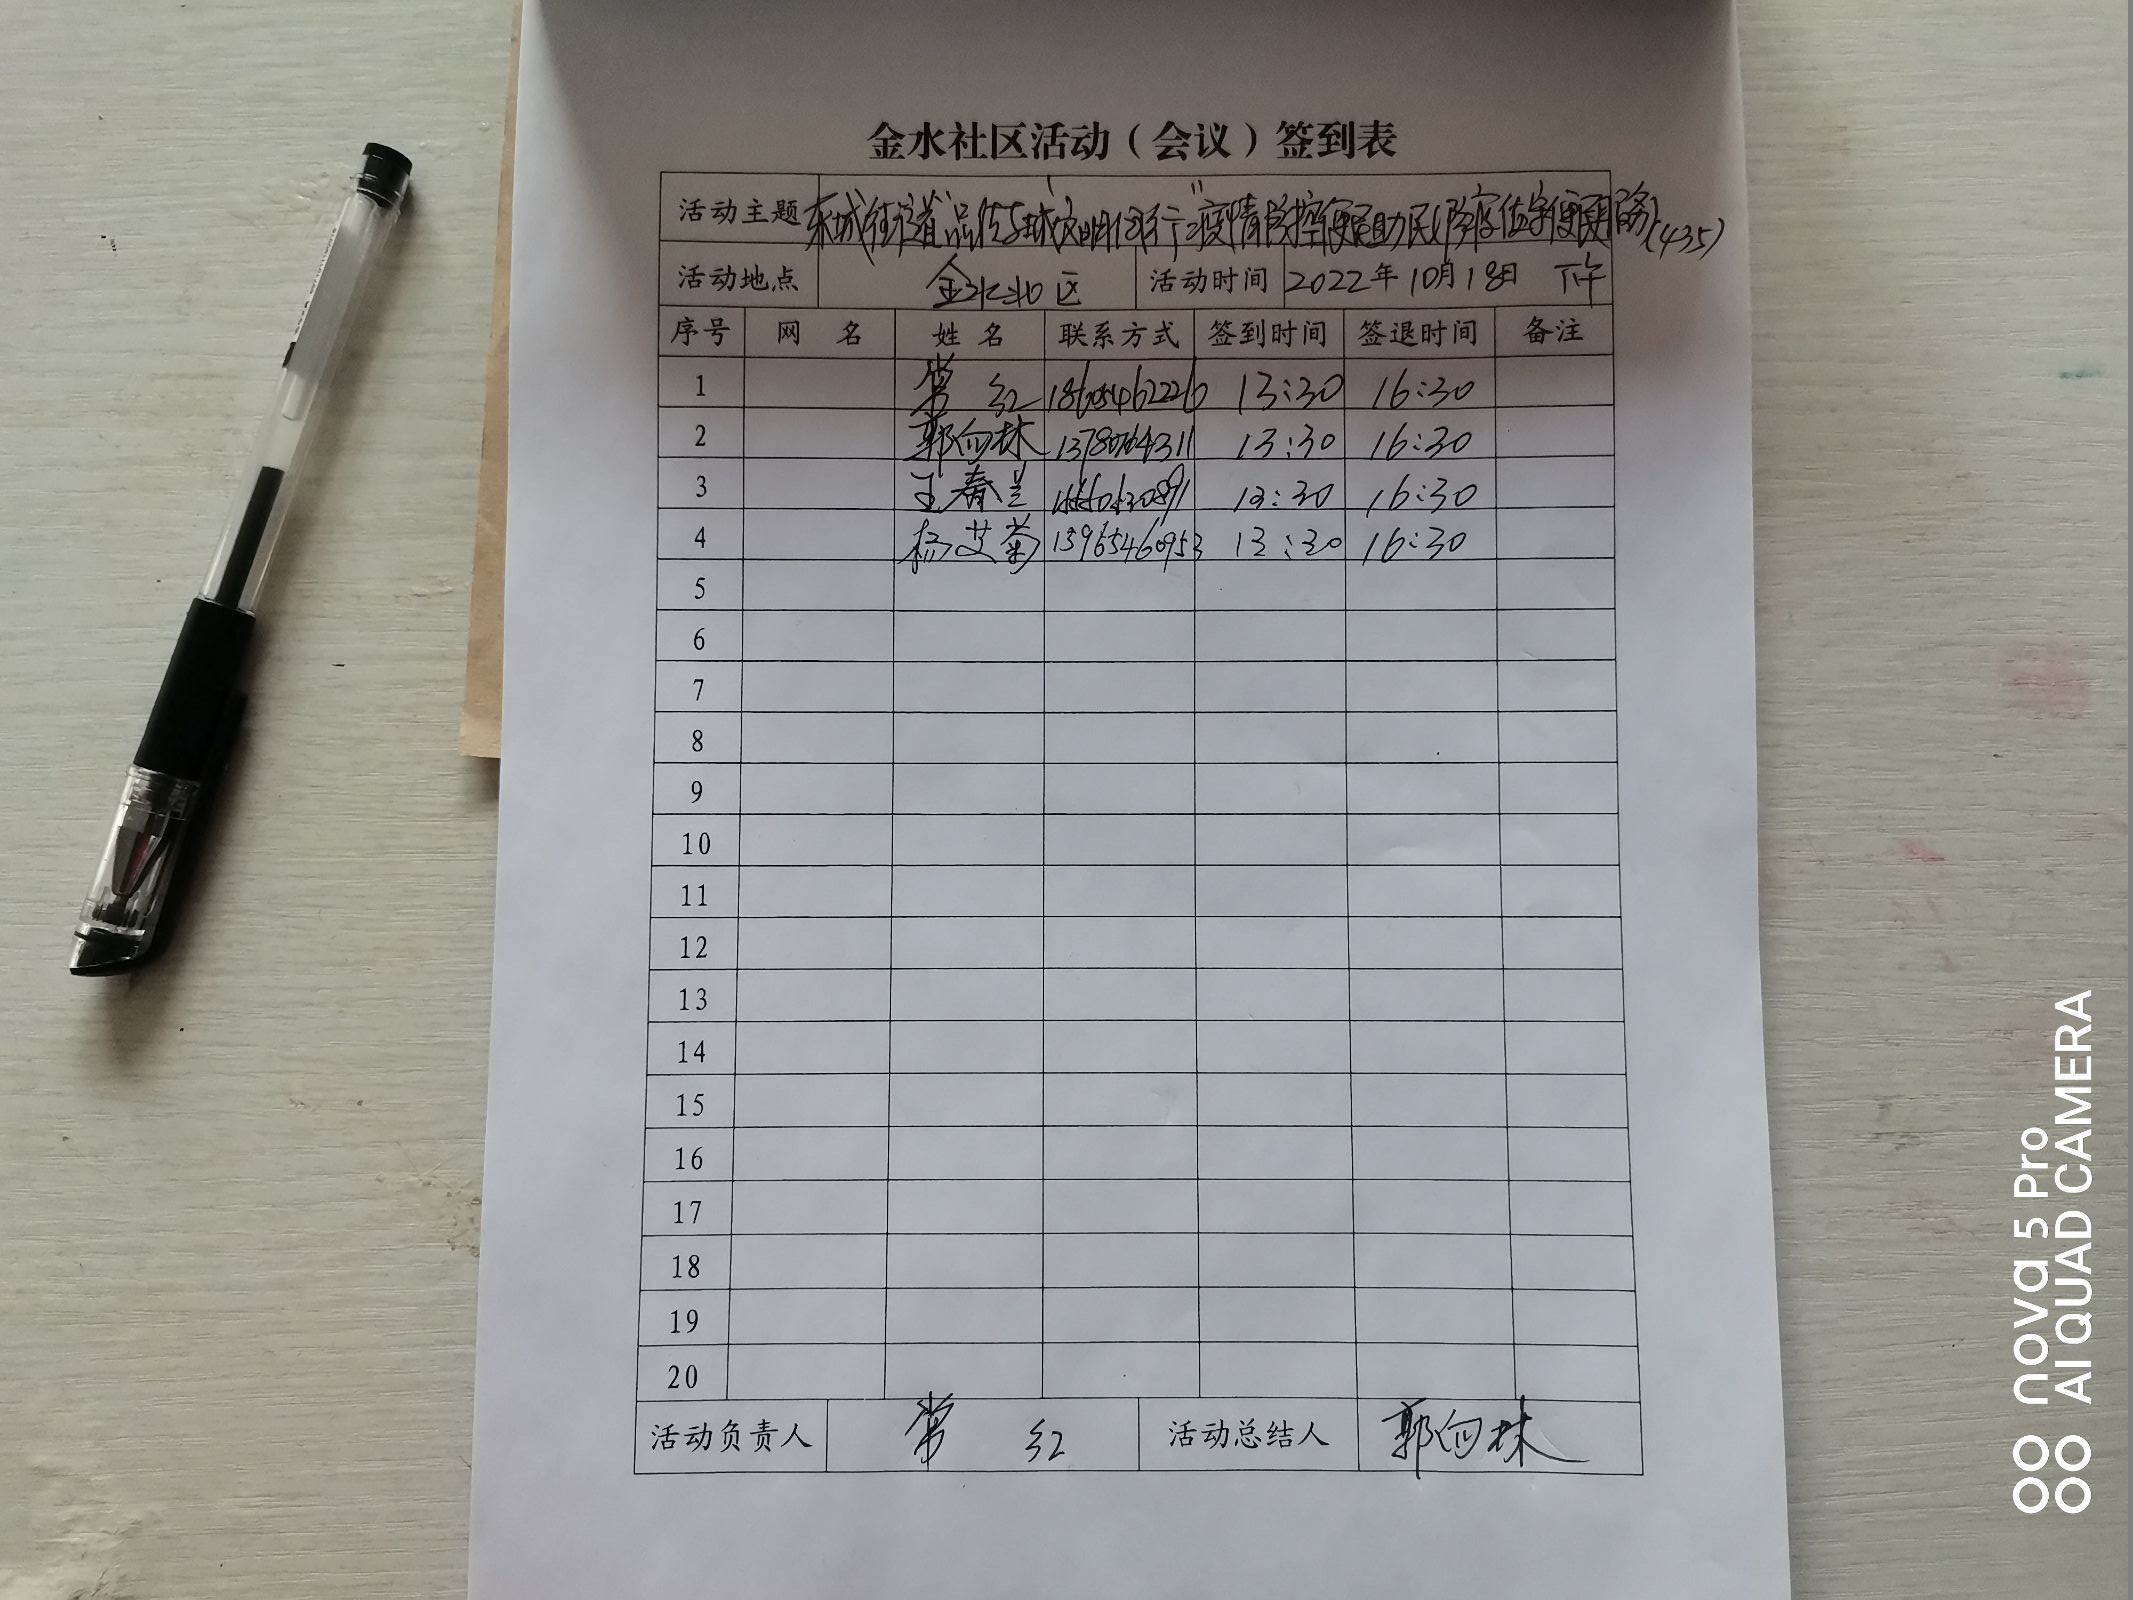 金水社区活动（会议）签到表
活动主题 东城街道 文明 行" 疫情防控便民助民 值守便民服务(435)
活动地点 金水北区 活动时间 2022年10月18日 下午
序号 网 名 姓 名 联系方式 签到时间 签退时间 备注
1 常 红 18605462226 13:30 16:30
2 郭向林 13780764311 13:30 16:30
3 王春兰 13:30 16:30
4 杨艾菊 13965460953 13:30 16:30
5
6
7
8
9
10
11
12
13
14
15
16
17
18
19
20
活动负责人 常 红 活动总结人 郭向林
nova 5 Pro
AI QUAD CAMERA